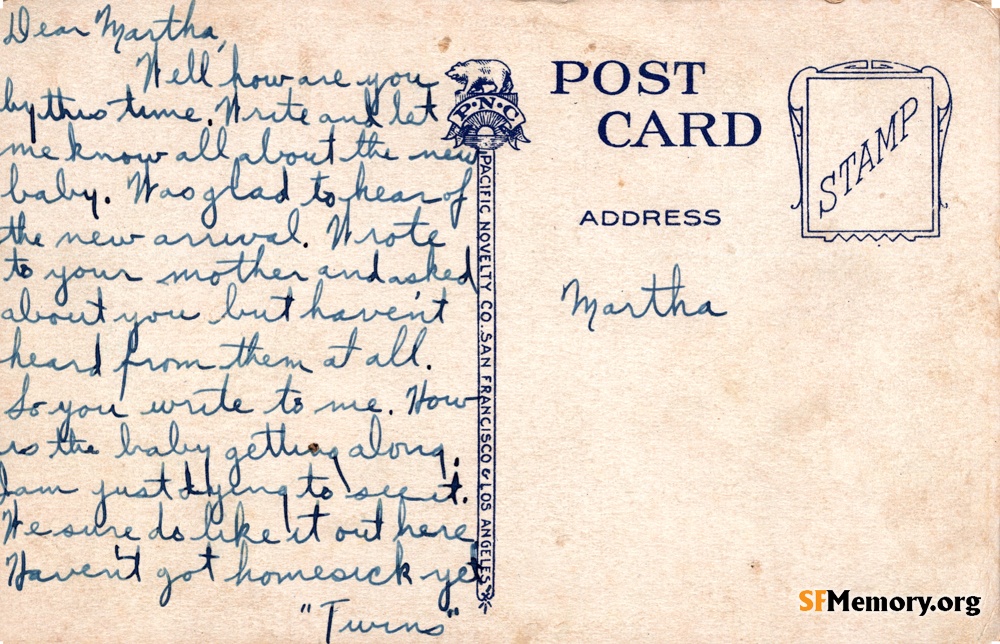 Dear Martha,
Well how are you
by this time. Write and let
me know all about the new
baby. Was glad to hear of
the new arrival. Wrote
to your mother and asked
about you but haven't
heard from them at all.
So you write to me. How
is the baby getting along.
I am just dyeing to see it.
We sure do like it out here
Haven't got homesick yet
"Twins"
P·N·C
PACIFIC NOVELTY CO., SAN FRANCISCO & LOS ANGELES
POST
CARD
STAMP
ADDRESS
Martha
SFMemory.org